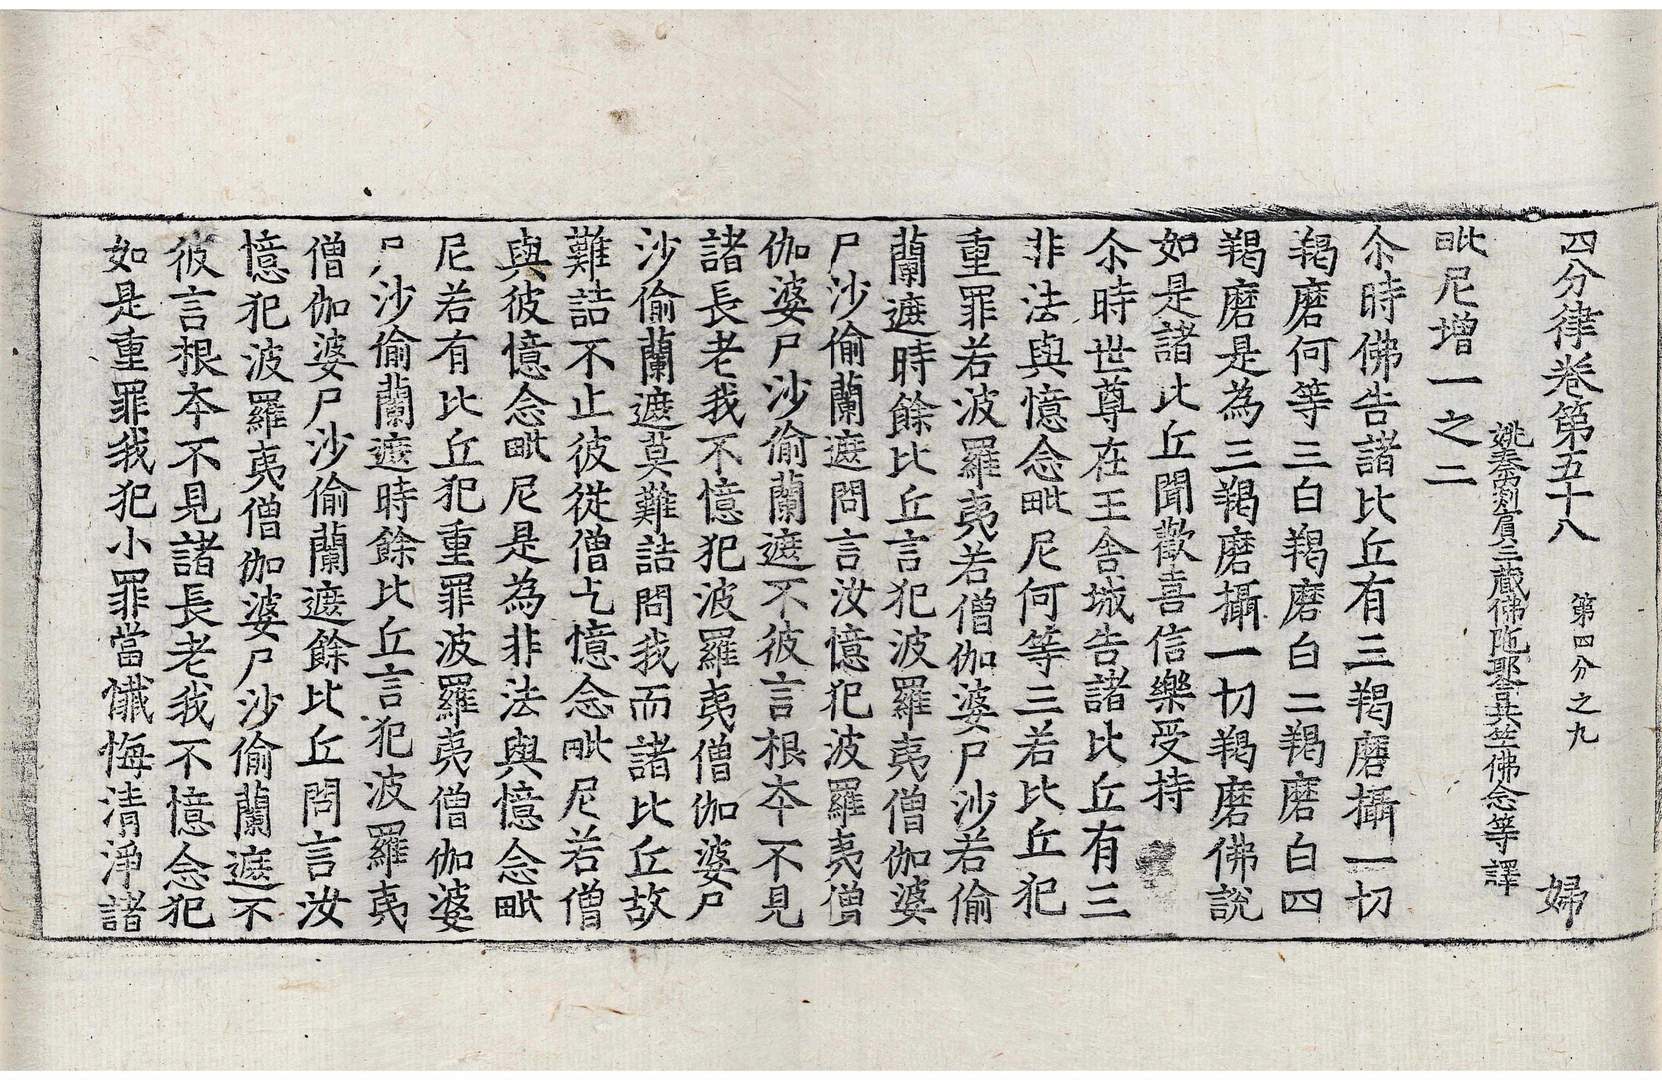 四分律卷第五十八 第四分之九 婦
姚秦罽賓三藏佛陁耶舍共竺佛念等譯
毗尼增一之二
尒時佛告諸比丘有三羯磨攝一切
羯磨何等三白羯磨白二羯磨白四
羯磨是為三羯磨攝一切羯磨佛說
如是諸比丘聞歡喜信樂受持
尒時世尊在王舍城告諸比丘有三
非法與憶念毗尼何等三若比丘犯
重罪若波羅夷若僧伽婆尸沙若偷
蘭遮時餘比丘言犯波羅夷僧伽婆
尸沙偷蘭遮問言汝憶犯波羅夷僧
伽婆尸沙偷蘭遮不彼言根夲不見
諸長老我不憶犯波羅夷僧伽婆尸
沙偷蘭遮莫難詰問我而諸比丘故
難詰不止彼從僧乞憶念毗尼若僧
與彼憶念毗尼是為非法與憶念毗
尼若有比丘犯重罪波羅夷僧伽婆
尸沙偷蘭遮時餘比丘言犯波羅夷
僧伽婆尸沙偷蘭遮餘比丘問言汝
憶犯波羅夷僧伽婆尸沙偷蘭遮不
彼言根夲不見諸長老我不憶念犯
如是重罪我犯小罪當懺悔清淨諸